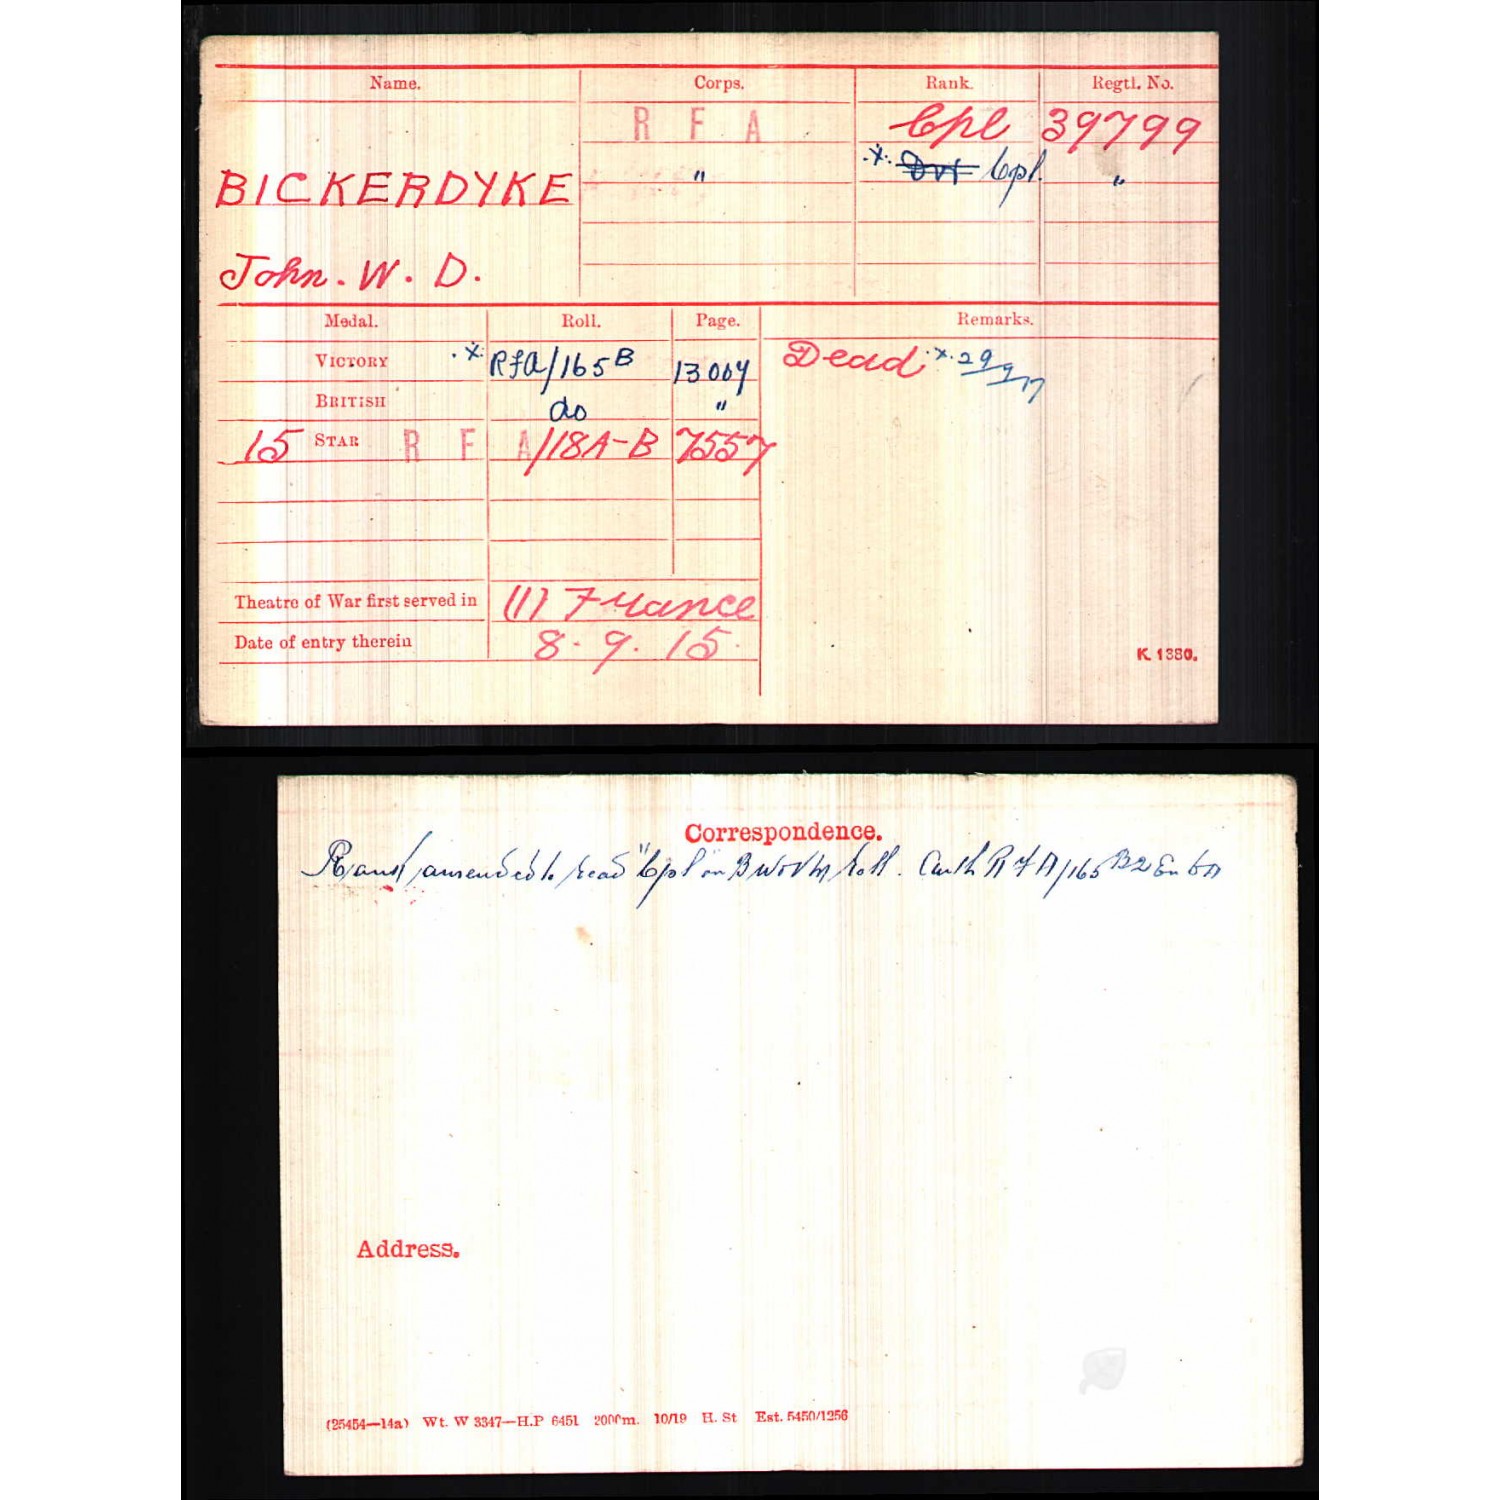 Name. Corps. Rank. Regtl. No.
R F A Cpl 39799
BICKERDYKE " .x. Dvr Cpl. "
John. W. D.
Medal. Roll. Page. Remarks.
VICTORY .x. RFA/165B 13004 Dead .x. 29/9/17
BRITISH do "
15 STAR R F A/18A-B 7557
Theatre of War first served in (1) France
Date of entry therein 8.9.15.
K. 1380.
Correspondence.
Rank amended to read "Cpl" on BW&VM Roll. Auth RFA/165B2
Address.
(25454—14a) Wt. W 3347—H.P 6451 2000m. 10/19 H. St Est. 5450/1256